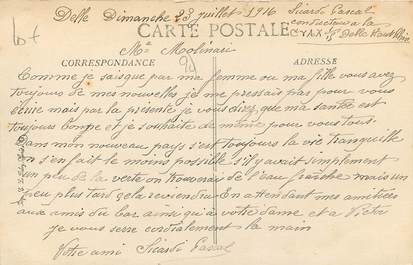 Delle Dimanche 23 juillet 1916 Sicardi Pascal
conducteur a la
CARTE POSTALE
Delle Haut Rhin
Mr Molinari
CORRESPONDANCE
ADRESSE
Comme je sais que par ma femme ou ma fille vous avez
toujours de mes nouvelles, je me pressais pas pour vous
écrire mais par la présente je vous direz que ma santée est
toujours bonne et je souhaite de même pour vous tous.
Dans mon nouveau pays c'est toujours la vie tranquille
on s'en fait le moins possible s'il y avait simplement
un peu de la verte on trouverai de l'eau fraîche mais un
peu plus tard cela reviendra. En attendant mes amitiées
aux amis du bar ainsi qui a votre dame et a Victor
je vous serre cordialement la main
Votre ami Sicardi Pascal